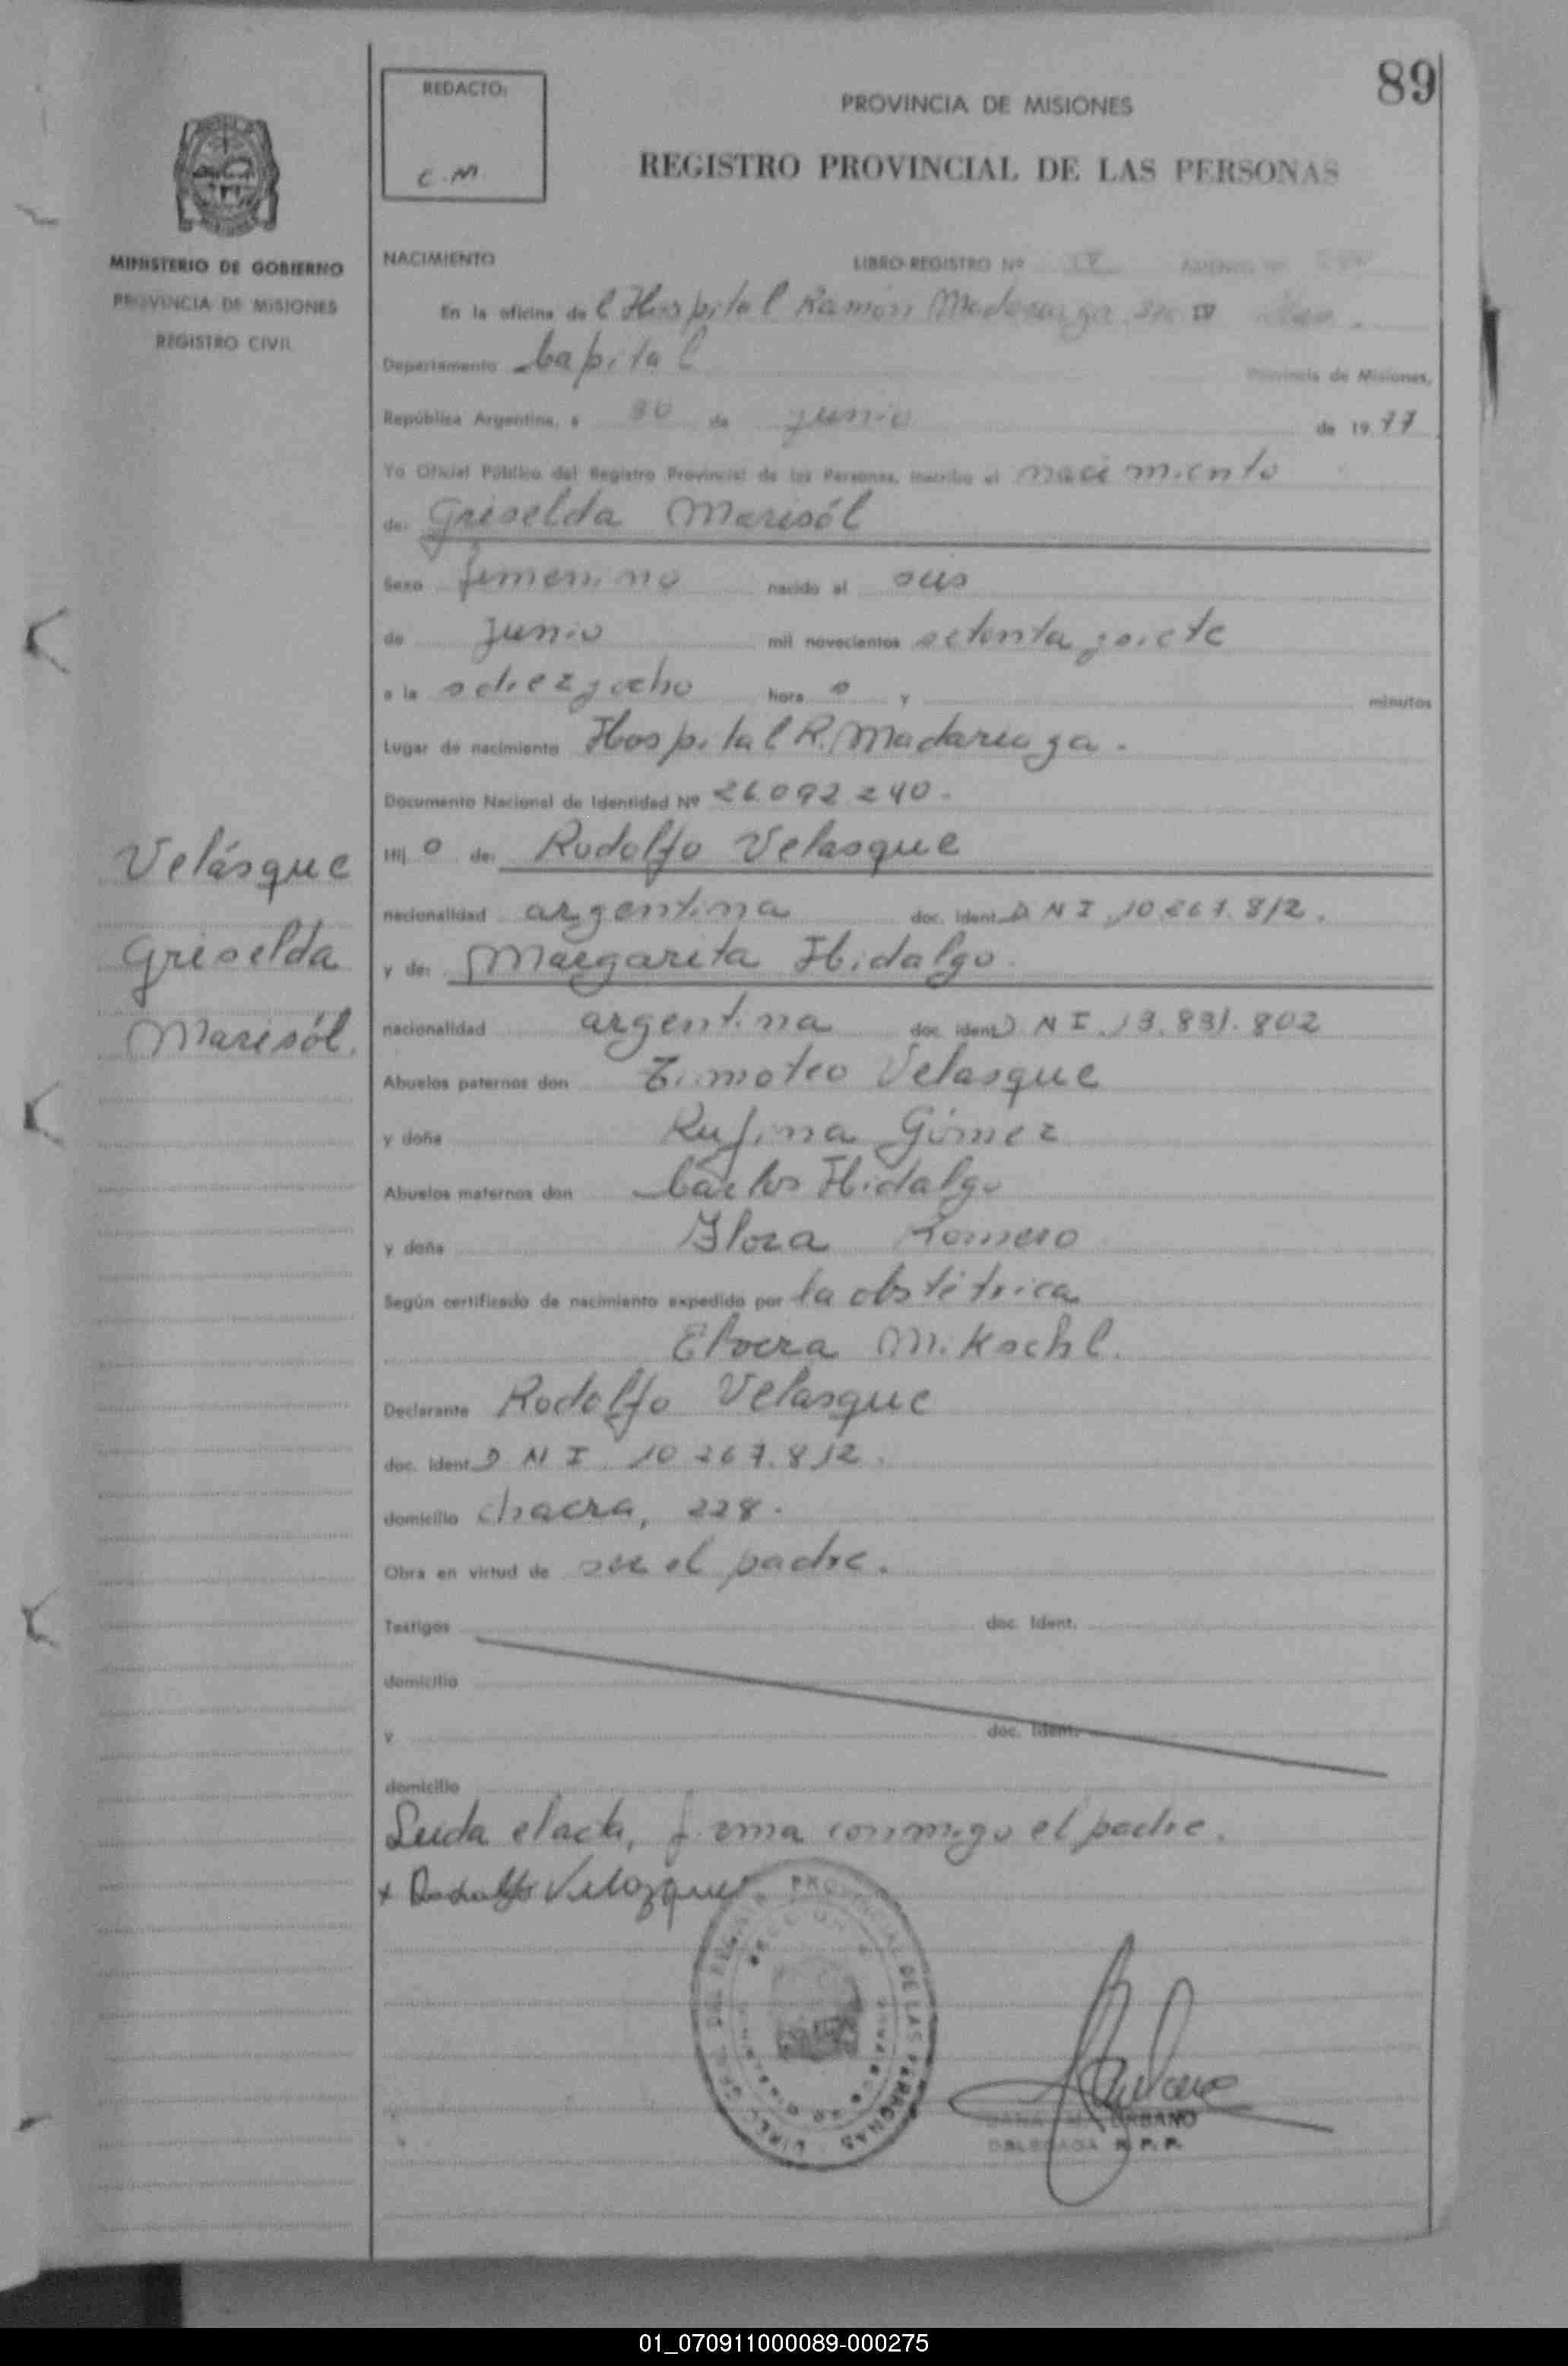 89
REDACTO:
C.M.
PROVINCIA DE MISIONES
REGISTRO PROVINCIAL DE LAS PERSONAS
MINISTERIO DE GOBIERNO
PROVINCIA DE MISIONES
REGISTRO CIVIL
NACIMIENTO LIBRO-REGISTRO Nº IV
En la oficina de l Hospital Ramón Madariaga Sec IV
Departamento Capital Provincia de Misiones,
República Argentina, a 30 de junio de 1977
Yo Oficial Público del Registro Provincial de las Personas, inscribo el nacimiento
de: Griselda Marisól
Sexo femenino nacido el seis
de Junio mil novecientos setenta y siete
a la s diez y ocho hora s y minutos
Lugar de nacimiento Hospital R. Madariaga.
Documento Nacional de Identidad Nº 26.092.240.
Hij o de: Rodolfo Velasque
nacionalidad argentina doc. ident. D N I. 10.267.812.
y de: Margarita Hidalgo.
nacionalidad argentina doc. ident. D N I. 13.831.802
Abuelos paternos don Timoteo Velasque
y doña Rufina Gómez
Abuelos maternos don Carlos Hidalgo
y doña Flora Romero
Según certificado de nacimiento expedido por la obstétrica
Elvira Mikschl.
Declarante Rodolfo Velasque
doc. ident. D N I 10 267.812.
domicilio chacra, 228.
Obra en virtud de ser el padre.
Testigos doc. Ident.
domicilio
y doc. Ident.
domicilio
Leida el acta, firma conmigo el padre.
x Rodolfo Velazque
Velásque
Griselda
Marisól.
PROVINCIAL DE LAS PERSONAS
URBANO
DELEGADA R. P. P.
01_070911000089-000275